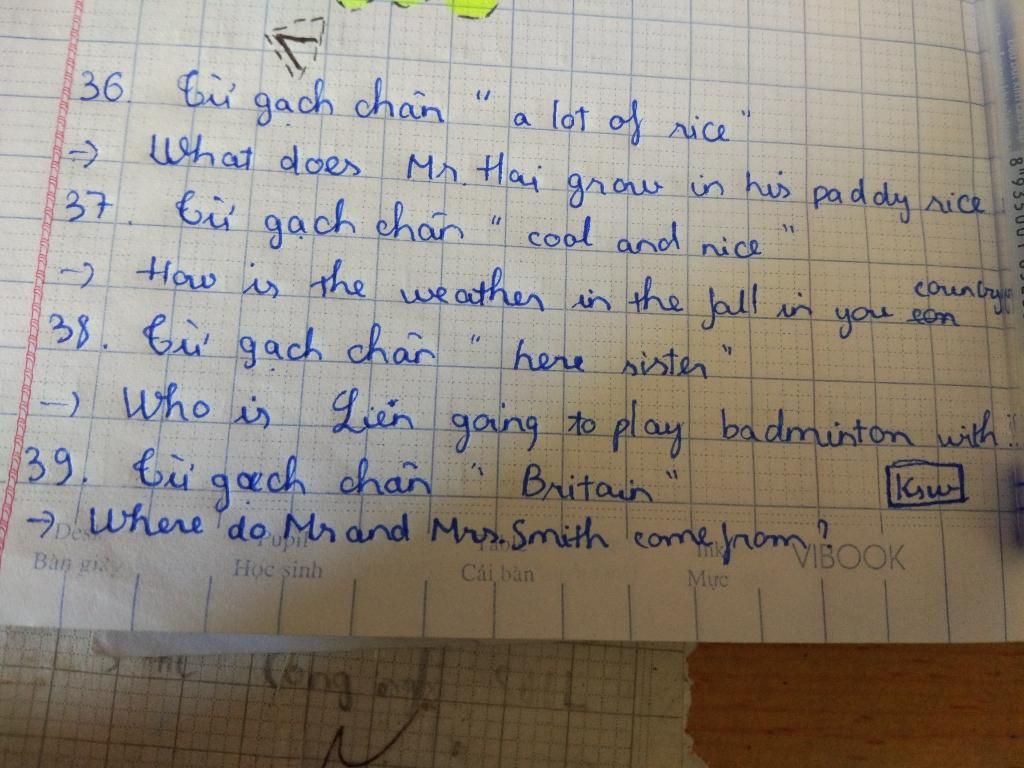 36. từ gạch chân " a lot of rice "
→ What does Mr. Hai grow in his paddy rice
37. từ gạch chân " cool and nice "
→ How is the weather in the fall in you con country
38. từ gạch chân " here sister "
→ Who is Liên going to play badminton with?
39. từ gạch chân " Britain "
→ Where do Mr and Mrs. Smith come from?
Bàn giáy
Học sinh
Cái bàn
Mực
VIBOOK